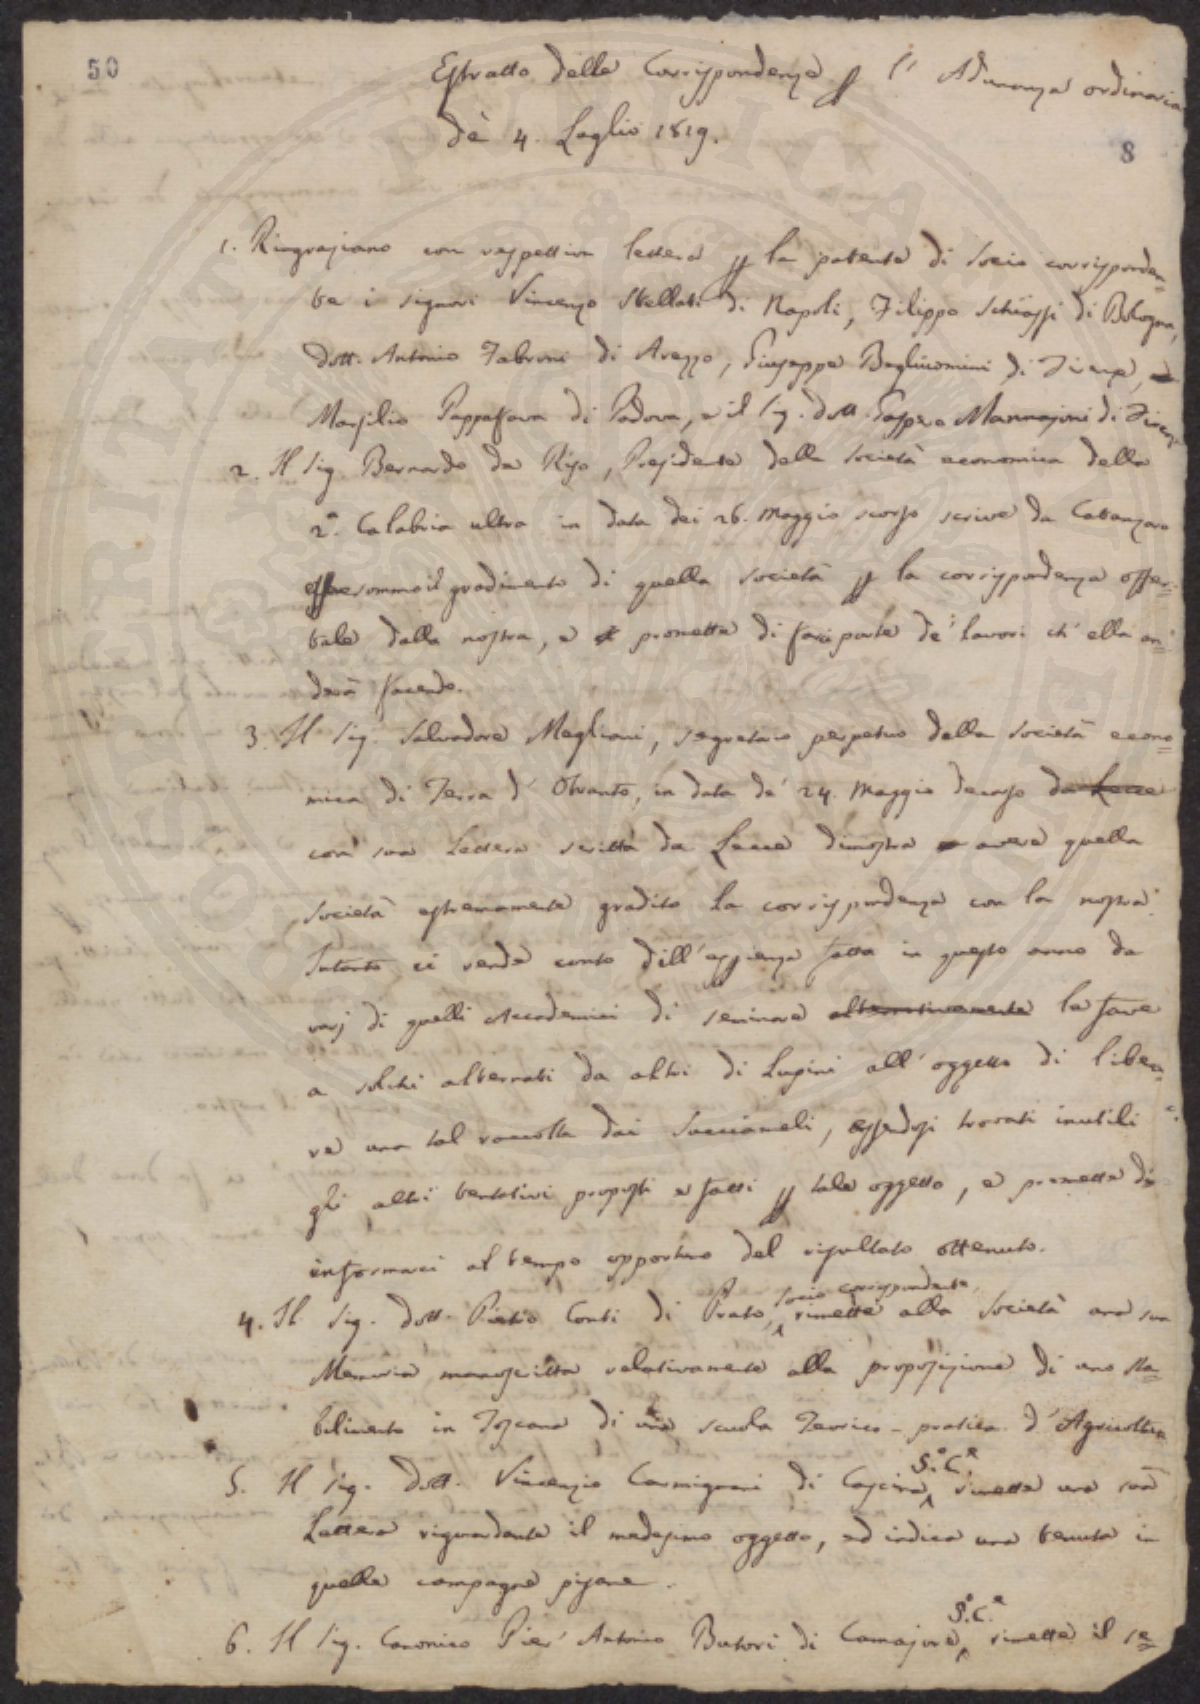 50
Estratto della Corrispondenza p l' Adunanza ordinaria
de' 4. Luglio 1819.
8
1. Ringraziano con rispettiva lettera p la patente di Socio corrisponden=
te i signori Vincenzo Stellati di Napoli, Filippo Schiassi di Bologna,
dott. Antonio Fabroni di Arezzo, Giuseppe Begliuomini di Firenze, e
Marsilio Pappafava di Padova, e il Sig. dott. Gaspero Mannajoni di Firenze
2. Il Sig. Bernardo de Riso, Presidente della Società economica della
2ª. Calabria ultra in data dei 26. Maggio scorso scrive da Cattanzaro
essere sommo il gradimento di quella Società p la corrispondenza offer=
tale dalla nostra, e promette di farci parte de' lavori ch' ella an=
derà facendo.
3. Il Sig. Salvadore Maglioni, segretario perpetuo della Società econo=
mica di Terra d' Otranto, in data de' 24. Maggio decorso da Lecce
con sua lettera scritta da Lecce dimostra avere quella
Società estremamente gradito la corrispondenza con la nostra.
Intanto ci rende conto dell' espienza fatta in questo anno da
varj di quelli Accademici di seminare alternativamente le fave
a solchi alternati da altri di Lupini all' oggetto di libera=
re una tal raccolta dai Succiameli, essendosi trovati inutili
gli altri tentativi proposti e fatti p tale oggetto, e promette di
informarci al tempo opportuno del risultato ottenuto.
4. Il Sig. Dott. Pietro Conti di Prato, socio corrispondente, rimette alla Società una sua
Memoria manoscritta relativamente alla proposizione di uno sta=
bilimento in Toscana di una scuola Teorico-pratica d' Agricoltura
5. Il Sig. Dott. Vincenzio Carmignani di Cascina S.º C.e rimette una sua
Lettera riguardante il medesimo oggetto, ed indica una tenuta in
quelle campagne pisane.
6. Il Sig. Canonico Pier' Antonio Butori di Camajore, S.º C.e rimette il se=